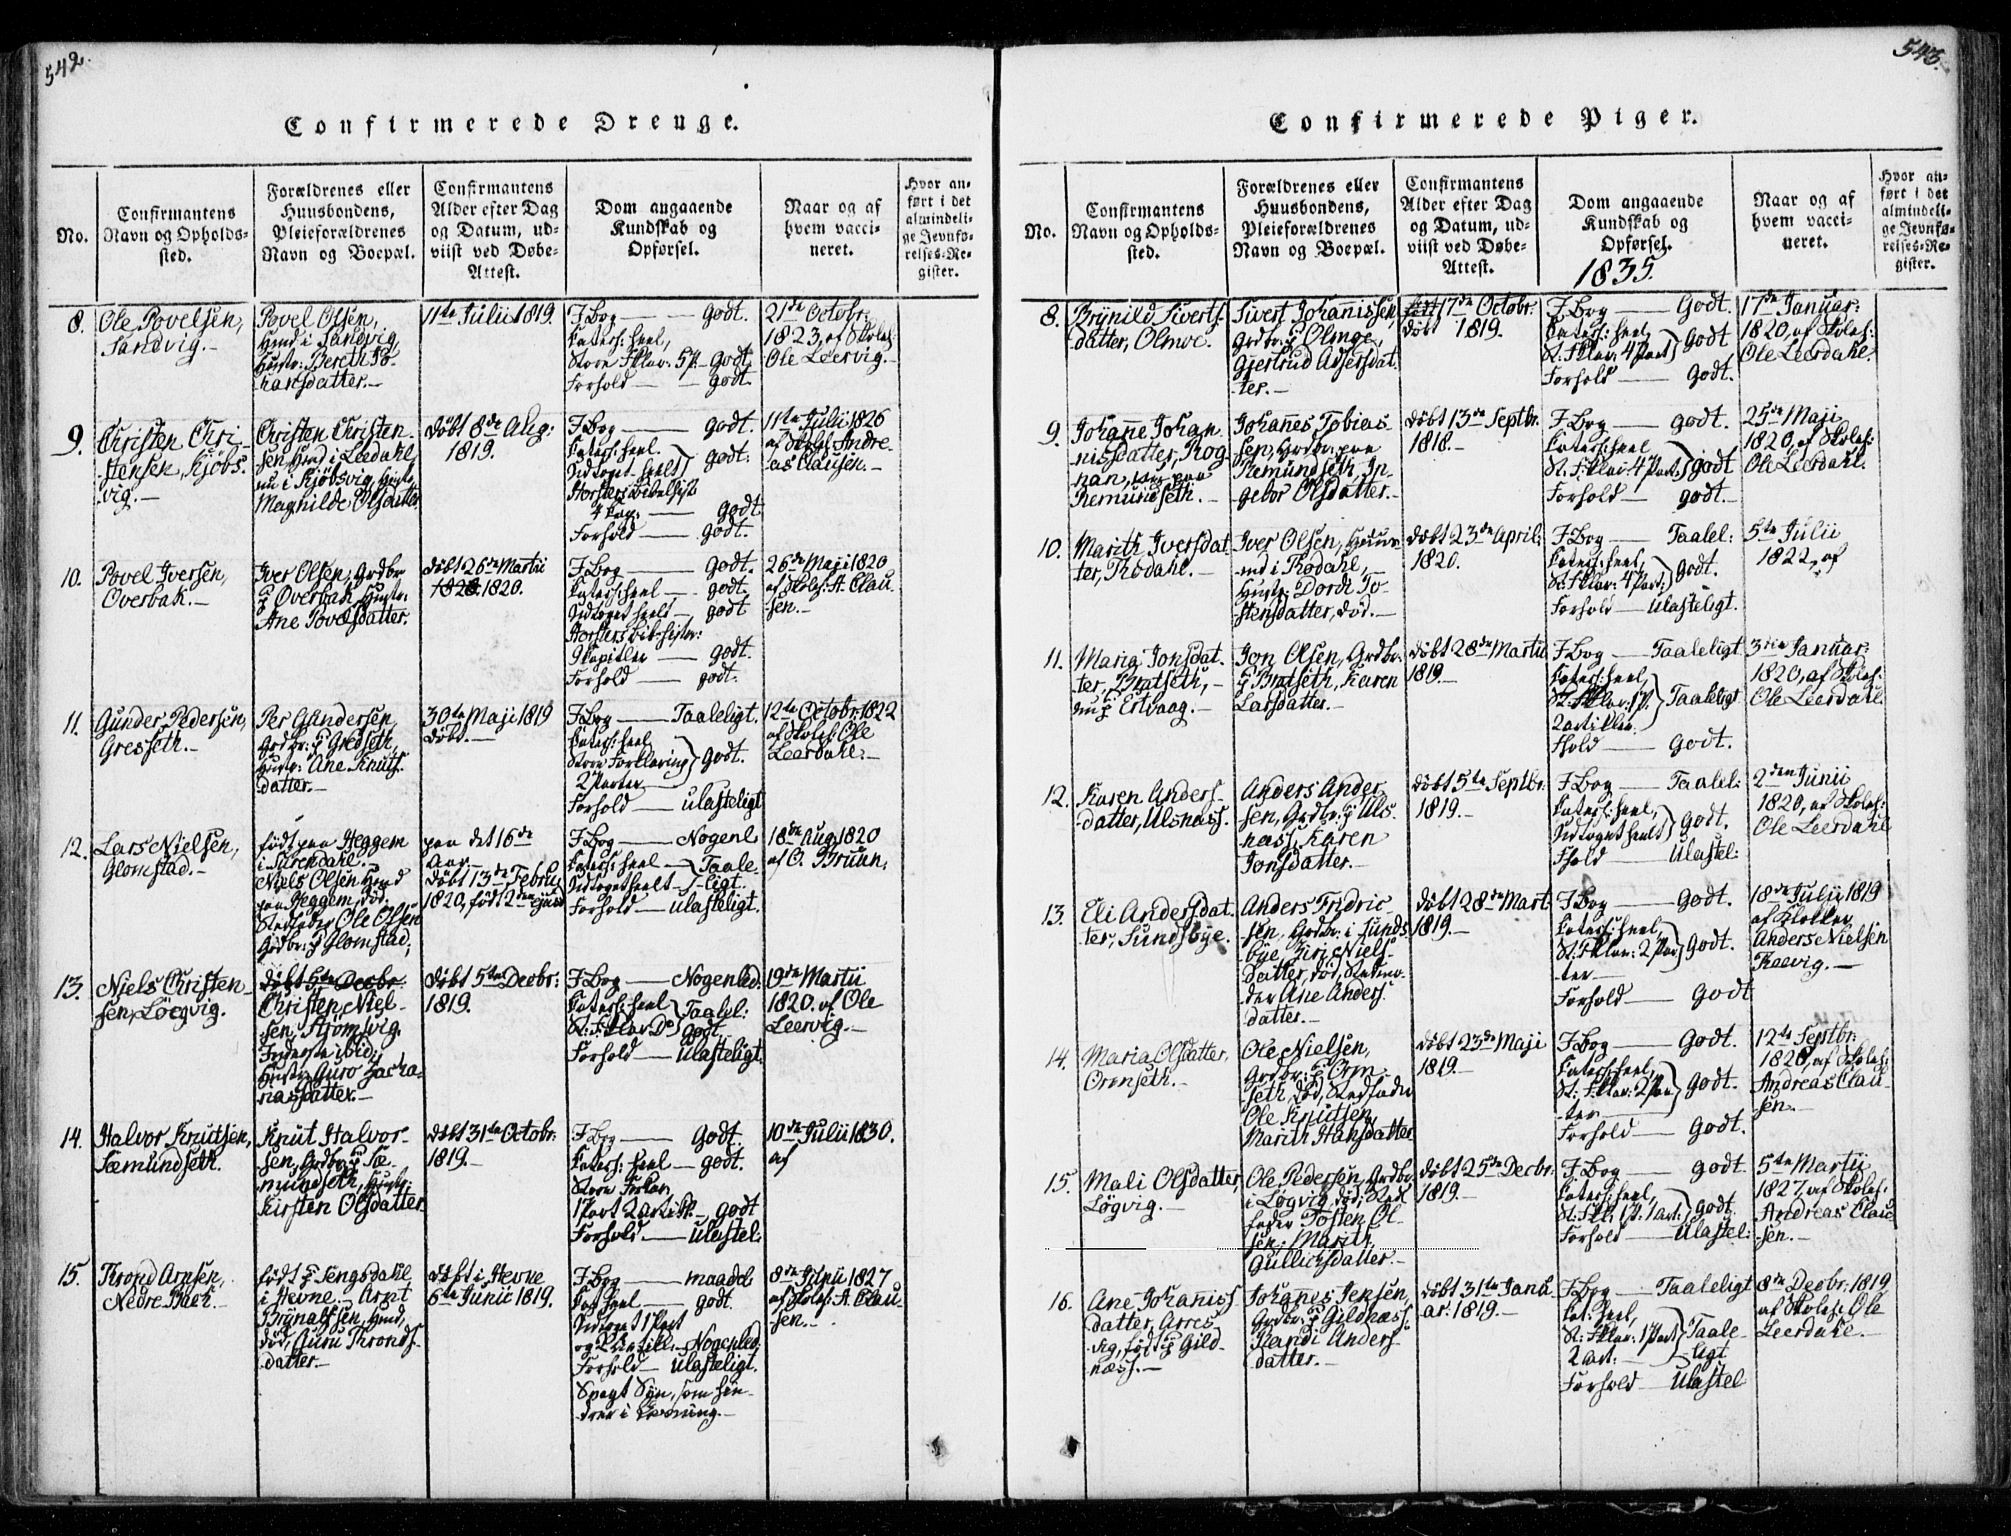 542.
Confirmerede Drenge.
No.
Confirmantens
Navn og Opholds-
sted.
Forældrenes eller
Huusbondens,
Pleieforældrenes
Navn og Boepæl.
Confirmantens
Alder efter Dag
og Datum, ud-
viist ved Døbe-
Attest.
Dom angaaende
Kundskab og
Opførsel.
Naar og af
hvem vacci-
neret.
Hvor an-
ført i det
almindeli-
ge Jevnfø-
relses-Re-
gister.
8.
Ole Povelsen,
Sandvig.-
Povel Olsen,
Hmd i Sandvig,
Hustr: Bereth Jo-
hansdatter.-
11te Julii 1819.
I Bog — Godt.
Catech: heel,
Store Fklar: 5 P.- Godt
Forhold — godt.
21de Octobr:
1823, af Skoles:
Ole Leervig.-
9.
Christen Chri-
stensen, Kjøbs-
vig.-
Christen Christen-
sen, Hmd i Leedahl
nu i Kjøbsvig, Hustr:
Magnilde Olsdatter
døbt 8de Aug:
1819.
I Bog — godt.
Catech: heel
Udtoget heelt } godt.
Horsters bibelhist.
4 Kap: — godt.
Forhold — godt.
11te Julii 1826
af Skolel. Andre-
as Clausen.-
10.
Povel Iversen,
Overbak.-
Iver Olsen, Grdbr
p Overbak, Hustr:
Ane Povelsdatter.
døbt 26de Martii
1820.
I Bog — godt.
Catech: heel — godt.
Udtoget heelt - godt
Horsters bib: histor:
9 Kapitler — godt.
Forhold — godt.
26de Maji 1820
af Skoles: A. Clau-
sen.-
11.
Gunder Pedersen,
Gresseth.-
Per Gundersen,
Grdbr: p Gredseth,
Hustr: Ane Knuts-
datter.-
30te Maji 1819
døbt.-
I Bog — Taaleligt.
Catech: heel
Store Forklaring } Godt.
2 Parter
Forhold — ulasteligt
12te Octobr: 1822
af Skoles: Ole
Leerdahl.-
12.
Lars Nielsen,
Glomstad.-
født paa Heggem
i Surendahl.
Niels Olsen Hmd
paa Heggem, død.
Stedfader Ole Olsen
Grdbr: p Glomstad,
paa det 16de
Aar.-
Døbt 13de Febru
1820, født 2den
I Bog — Nogenl
Catech: heel — } Taale-
Udtoget heelt - ligt.
Forhold — ulasteligt.
18de Aug 1820
af O. Bruun.
13.
Niels Christen-
sen, Løgvig.
døbt 5te Decbr:
Christen Niel-
sen, Strømsvig.
Inderste ibid:
Hustr: Guro Zacha-
riasdatter.-
døbt 5te Decbr:
1819.
I Bog — Nogenled.
Catech: heel } Taalel:
St: Fklar Do Godt
Forhold — ulasteligt.
19de Martii
1820. af Ole
Leervig.-
14.
Halvor Knutsen,
Sæmundseth.
Knut Halvor-
sen, Grdbr: p Sæ-
mundseth, Hustr:
Kirsten Olsdatter
døbt 31te Octobr:
1819.-
I Bog — Godt.
Catech: heel — godt.
Store Forklar,
1 Part 2 Artik. - godt
Forhold — ulastel:
10de Julii 1830.
af
15.
Thrond Arnsen,
Nedre Buch.-
født p Fengsdahl
i Hevne.- Arnt
Brynalfsen, Hmd,
død, Guru Thronds-
datter.-
døbt i Hevne
6te Junii 1819.
I Bog — maadel
Cat: heel — godt.
Udtoget 1 Part
og 2 Artikl. - Nogenled
Forhold — ulasteligt.
Svagt Syn, som hin-
drer i Læsning.-
8de Junii 1827
af Skoles: A. Clau-
sen.-
543.
Confirmerede Piger.
No.
Confirmantens
Navn og Opholds-
sted.
Forældrenes eller
Huusbondens,
Pleieforældrenes
Navn og Boepæl.
Confirmantens
Alder efter Dag
og Datum, ud-
viist ved Døbe-
Attest.
Dom angaaende
Kundskab og
Opførsel.
1835.
Naar og af
hvem vacci-
neret.
Hvor an-
ført i det
almindeli-
ge Jevnfø-
relses-Re-
gister.
8.
Brynild Siverts-
datter, Olmoe.
Sivert Johanissen,
Grdbr: p Olmoe,
Gjertrud Assersdat-
ter.-
17de Octobr:
døbt 1819.
I Bog — Godt.
Catech: heel,
St: Fklar: 4 Part } Godt
Forhold — Godt.
17de Januar:
1820, af Skoles:
Ole Leerdahl.
9.
Johanne Johan-
nisdatter, Rog-
nan, paa
Remundseth.-
Johannes Tobias-
sen, Grdbr: paa
Remundseth, In-
gebor Olsdatter.-
døbt 13de Septbr.
1818.-
I Bog — godt.
Catech: heel
St: Fklar 4 Part } godt
Forhold — godt.
25de Maji
1820, af Skoles:
Ole Leerdahl.
10.
Marith Iversdat-
ter, Rodahl.-
Iver Olsen, Huus-
md i Rodahl,-
Hustr: Dordi To-
stensdatter, død.-
døbt 23de April:
1820.
I Bog — Taalel:
Catech: heel,
St: Fklar: 4 Part } Godt.
Forhold — ulasteligt.
5te Julii
1822, af
11.
Maria Jonsdat-
ter, Bratseth,-
nu p Ertvaag.-
Jon Olsen, Grdbr:
p Bratseth, Karen
Larsdatter.-
døbt 28de Martii
1819.-
I Bog — Taaleligt
Catech: heel,
St: Fklar: 1 P. } Taaleligt
2 artikler.
Fhold — Godt.
3die Januar:
1820, af Skoles:
Ole Leerdahl.
12.
Karen Anders-
datter, Ulsnæss.
Anders Ander-
sen, Grdbr: p Uls-
næss, Karen
Jonsdatter.-
døbt 5te Septbr.
1819.-
I Bog — Taalel:
Catech: heel,
Udtoget heelt } Godt.
Fhold — Ulastel:
2den Junii
1820, af Skoles:
Ole Leerdahl
13.
Eli Andersdat-
ter, Sundsbye.
Anders Fredric-
sen, Grdbr: i Sunds-
bye, Giri Niels-
datter, død, Stedmo-
der Ane Anders-
datter.-
døbt 28de Mart.
1819.-
I Bog — Godt.
Catech: heel,
St: Fklar: 2 Par } Godt.
ter—
Forhold — Godt
18de Julii 1819
af Klokker
Anders Nielsen
14.
Maria Olsdatter,
Ormseth.-
Ole Nielsen,
Grdbr: p Orm-
seth, død, Stedfader
Ole Knutsen,
Marith Hansdatter
døbt 23de Maji
1819.-
I Bog — Godt.
Catech: heel,
St: Fklar: 2 Par } Godt.
ter—
Forhold — Godt.
12te Septbr:
1820, af Skoles:
Andreas Clau-
sen.-
15.
Mali Olsdatter
Løgvig.-
Ole Pedersen, Grdbr
i Løgvig, død, Sted-
fader Tosten Ol-
sen, Marith
Gullichsdatter.-
døbt 25de Decbr:
1819.-
I Bog — Godt.
Catech: heel,
St: Fkl: 1 P: 1 art: } Godt.
Forhold — Ulastel:
5te Martii
1827, af Skoles:
Andreas Clau-
sen.-
16.
Ane Johaniss
datter, Arres-
vig, født p Gild-
næss.-
Johanes Jensen,
Grdbr: p Gildnæss.
Randi Anders-
datter.-
døbt 31te Janu-
ar. 1819.-
I Bog — Taaleligt
Cat: heel,
St: Fklar: 1 Part } Taale-
2 art: — ligt
Forhold — Ulastel
8de Decbr: 1819,
af Skoles: Ole
Leerdahl.-